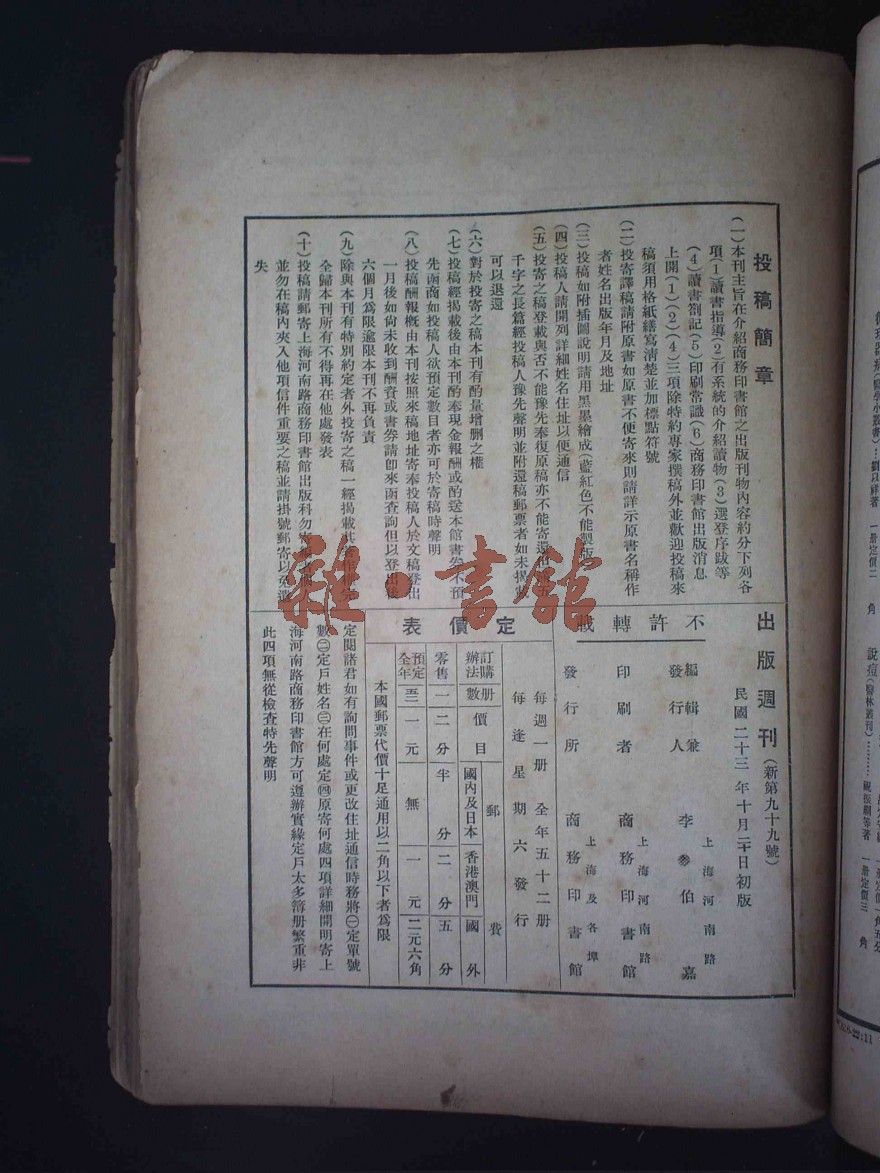 投稿簡章
(一)本刊主旨在介紹商務印書館之出版刊物內容約分下列各
項(1)讀書指導(2)有系統的介紹讀物(3)選登序跋等
(4)讀書劄記(5)印刷常識(6)商務印書館出版消息
上開(1)(2)(4)三項除特約專家撰稿外並歡迎投稿來
稿須用格紙繕寫清楚並加標點符號
(二)投寄譯稿請附原書如原書不便寄來則請詳示原書名稱作
者姓名出版年月及地址
(三)投稿如附插圖說明請用黑墨繪成(藍紅色不能製版
(四)投稿人請開列詳細姓名住址以便通信
(五)投寄之稿登載與否不能豫先奉復原稿亦不能寄還
千字之長篇經投稿人豫先聲明並附還稿郵票者如未揭
可以退還
(六)對於投寄之稿本刊有酌量增删之權
(七)投稿經揭載後由本刊酌奉現金報酬或酌送本館書券不預
先函商如投稿人欲預定數目者亦可於寄稿時聲明
(八)投稿酬報概由本刊按照來稿地址寄奉投稿人於文稿登出
一月後如尙未收到酬資或書券請卽來函查詢但以登出後
六個月為限逾限本刊不再負責
(九)除與本刊有特別約定者外投寄之稿一經揭載其
全歸本刊所有不得再在他處發表
(十)投稿請郵寄上海河南路商務印書館出版科勿寄
並勿在稿內夾入他項信件重要之稿並請掛號郵寄以免遺
失
出版週刊(新第九十九號)
民國二十三年十月二十日初版
不許轉載
編輯兼發行人 李伯嘉
上海河南路
印刷者 商務印書館
上海河南路
發行所 商務印書館
上海及各埠
定價表
每週一册 全年五十二册
每逢星期六發行
訂購辦法 册數 價目 郵費 國內及日本 香港澳門 國外
零售 一 二分 半分 二分 五分
預定全年 五二 一元 無 一元 二元六角
本國郵票代價十足通用以二角以下者為限
定閱諸君如有詢問事件或更改住址通信時務將㊀定單號
數㊁定戶姓名㊂在何處定㊃原寄何處四項詳細開明寄上
海河南路商務印書館方可遵辦實緣定戶太多簿册繁重非
此四項無從檢查特先聲明
雜·書館
劉以祥著 一册定價二角
說痘(醫林叢刊)………祝振綱等著 一册定價三角